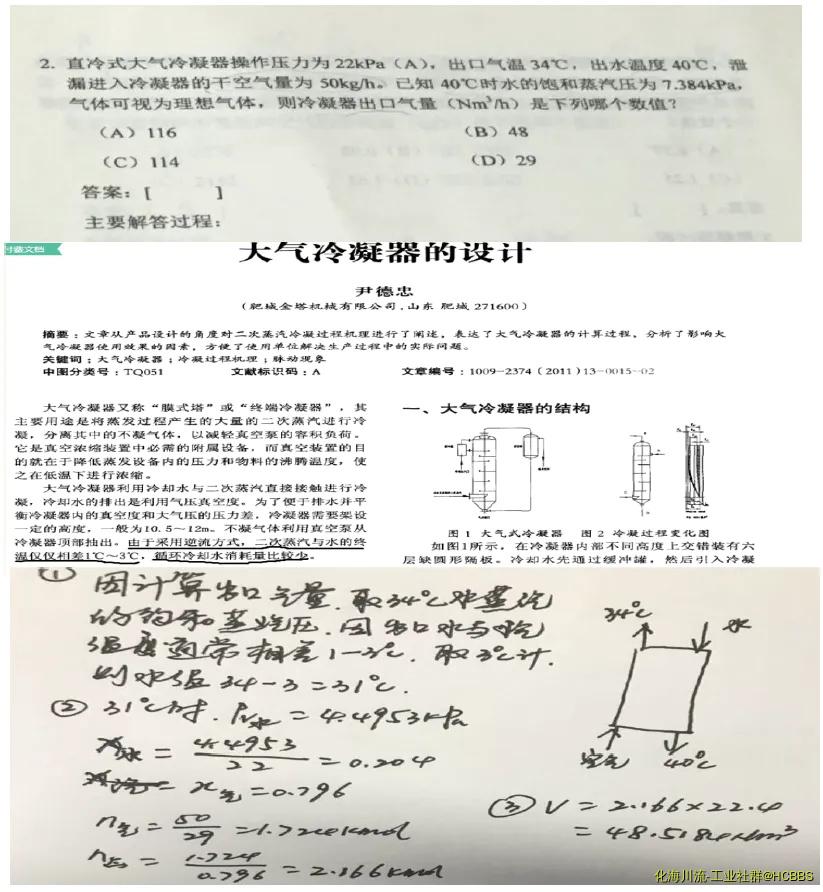 2. 直冷式大气冷凝器操作压力为22kPa（A），出口气温34℃，出水温度40℃，泄
漏进入冷凝器的干空气量为50kg/h。已知40℃时水的饱和蒸汽压为7.384kPa，
气体可视为理想气体，则冷凝器出口气量（Nm³/h）是下列哪个数值？
（A）116
（B）48
（C）114
（D）29
答案：[ ]
主要解答过程：
付费文档
大气冷凝器的设计
尹德忠
（肥城金塔机械有限公司，山东 肥城 271600）
摘要：文章从产品设计的角度对二次蒸汽冷凝过程机理进行了阐述，表达了大气冷凝器的计算过程，分析了影响大
气冷凝器使用效果的因素，方便了使用单位解决生产过程中的实际问题。
关键词：大气冷凝器；冷凝过程机理；脉动现象
中图分类号：TQ051 文献标识码：A 文章编号：1009-2374（2011）13-0015-02
大气冷凝器又称“膜式塔”或“终端冷凝器”，其
主要用途是将蒸发过程产生的大量的二次蒸汽进行冷
凝，分离其中的不凝气体，以减轻真空泵的容积负荷。
它是真空浓缩装置中必需的附属设备，而真空装置的目
的就在于降低蒸发设备内的压力和物料的沸腾温度，使
之在低温下进行浓缩。
大气冷凝器利用冷却水与二次蒸汽直接接触进行冷
凝，冷却水的排出是利用气压真空度。为了便于排水并平
衡冷凝器内的真空度和大气压的压力差，冷凝器需要架设
一定的高度，一般为10.5～12m。不凝气体利用真空泵从
冷凝器顶部抽出。由于采用逆流方式，二次蒸汽与水的终
温仅仅相差1℃～3℃，循环冷却水消耗量比较少。
一、大气冷凝器的结构
图 1 大气式冷凝器 图 2 冷凝过程变化图
如图1所示，在冷凝器内部不同高度上交错装有六
层缺圆形隔板。冷却水先通过缓冲罐，然后引入冷凝
① 因计算出口气量，取34℃水蒸汽
的饱和蒸汽压，因出口水与气
温度通常相差1-3℃，取3℃计，
则水温34-3=31℃.
② 31℃时. P水=4.4953kPa
x水=4.4953/22=0.204
x气=0.796
n气=50/29=1.724kmol
n总=1.724/0.796=2.166kmol
34℃
水
空气
40℃
③ V=2.166×22.4
=48.5184Nm³
化海川流-工业社群@HCBBS